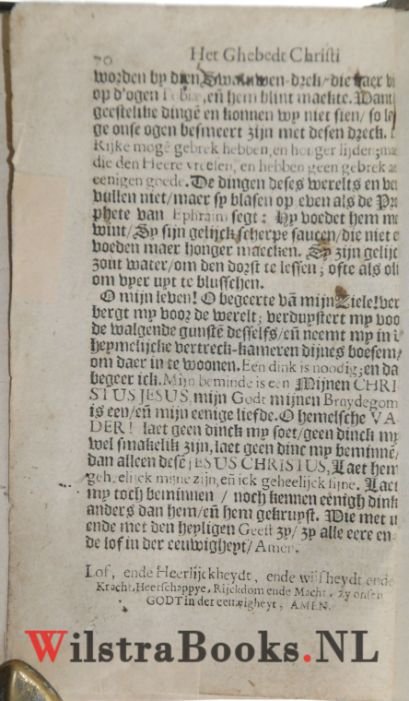 70 Het Ghebedt Christi
worden by dien Swaluwen-dreck/die daer
op d'ogen Tobie,eñ hem blint maekte. Want
geestelike dingē en konnen wy niet sien/ so
ge onse ogen besmeert zijn met desen dreck.
Rijke mogē gebrek hebben,en honger lijden;
die den Heere vreesen, en hebben geen gebrek
eenigen goede. De dingen deses werelts en
vullen niet/maer sy blasen op even als de
phete van Ephraim segt: Hy voedet hem
wint/ Sy sijn gelijck scherpe saucen/die niet
voeden maer honger maecken. Sy zijn
zout water/om den dorst te lessen; ofte als
om vyer uyt te blusschen.
O mijn leven! O begeerte vā mijn Ziele!
bergt my voor de werelt; verduystert my
de walgende gunstē desselfs/eñ neemt my in
heymelijcke vertreck-kameren dijnes boesem/
om daer in te woonen. Een dink is noodig;en
begeer ick. Mijn beminde is een Mijnen CHRI
STUS JESUS, mijn Godt mijnen Bruydegom
is een/eñ mijn eenige liefde. O hemelsche VA
DER! laet geen dinck my soet/geen dinck my
wel smakelik zijn, laet geen dinc my beminne/
dan alleen dese JESUS CHRISTUS, Laet hem
geheelijck mijne zijn,eñ ick geheelijck sijne. Laet
my toch beminnen / noch kennen eenigh
anders dan hem/eñ hem gekruyst. Die met
ende met den heyligen Geest zy/ zy alle eere
de lof in der eeuwigheyt/ Amen.
Lof, ende Heerlijckheydt, ende wijsheydt ende
Kracht, Heerschappye, Rijckdom ende Macht, zy onsen
GODT in der eeuwigheyt; AMEN.
WilstraBooks.NL